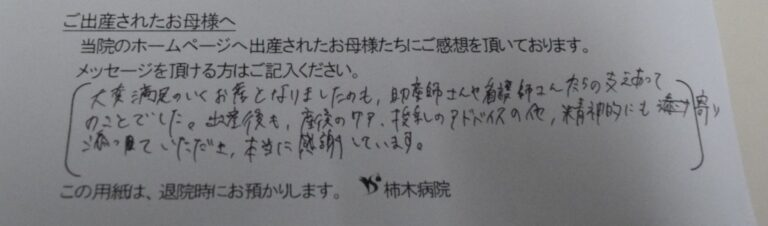 ご出産されたお母様へ
当院のホームページへ出産されたお母様たちにご感想を頂いております。
メッセージを頂ける方はご記入ください。
大変満足のいくお産となりましたのも、助産師さんや看護師さんたちの支えあって
のことでした。出産後も、産後のケア、授乳のアドバイスの他、精神的にも 寄り
添って いただき、本当に感謝しています。
この用紙は、退院時にお預かりします。 柿木病院